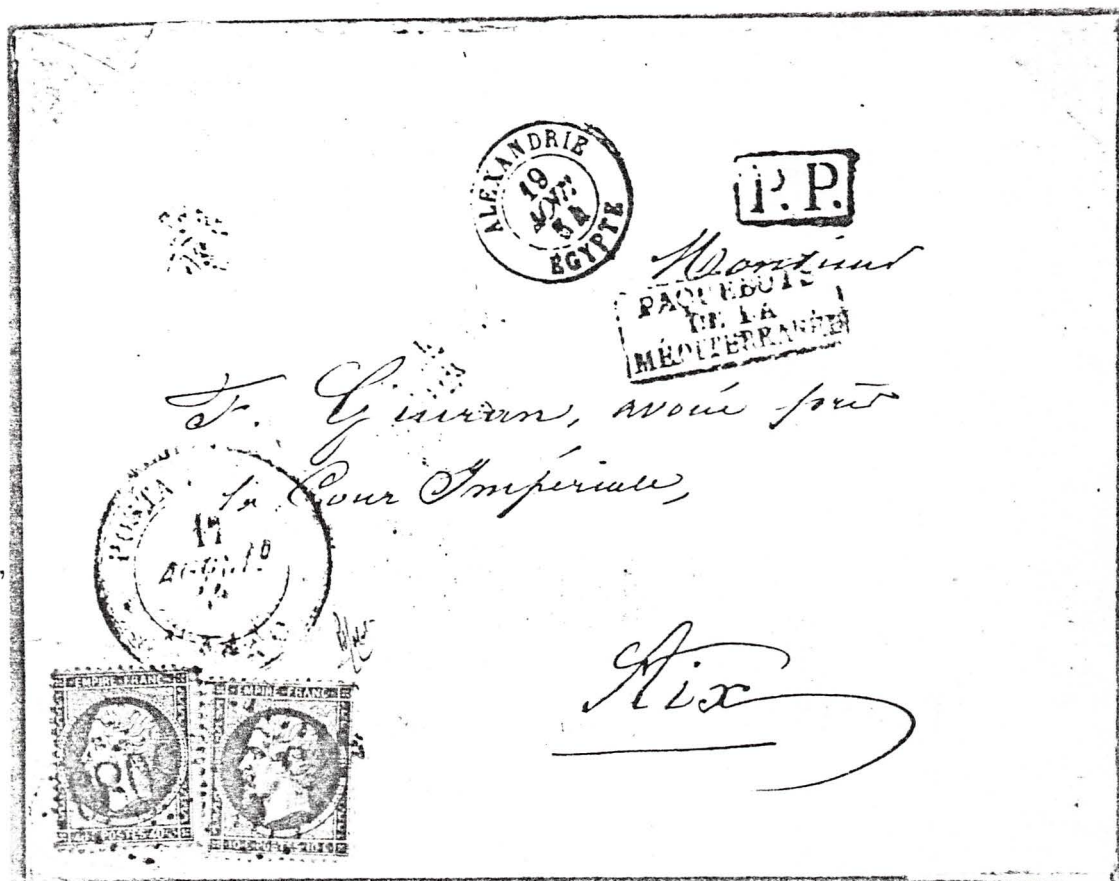 ALEXANDRIE
19
AOUT
EGYPTE
P.P.
Monsieur
PAQUEBOTS
DE LA
MÉDITERRANÉE
F. Guiran, avoué près
la Cour Impériale,
POSTA
17
Aix
EMPIRE FRANC
POSTES 40
EMPIRE FRANC
10 C POSTES 10 C